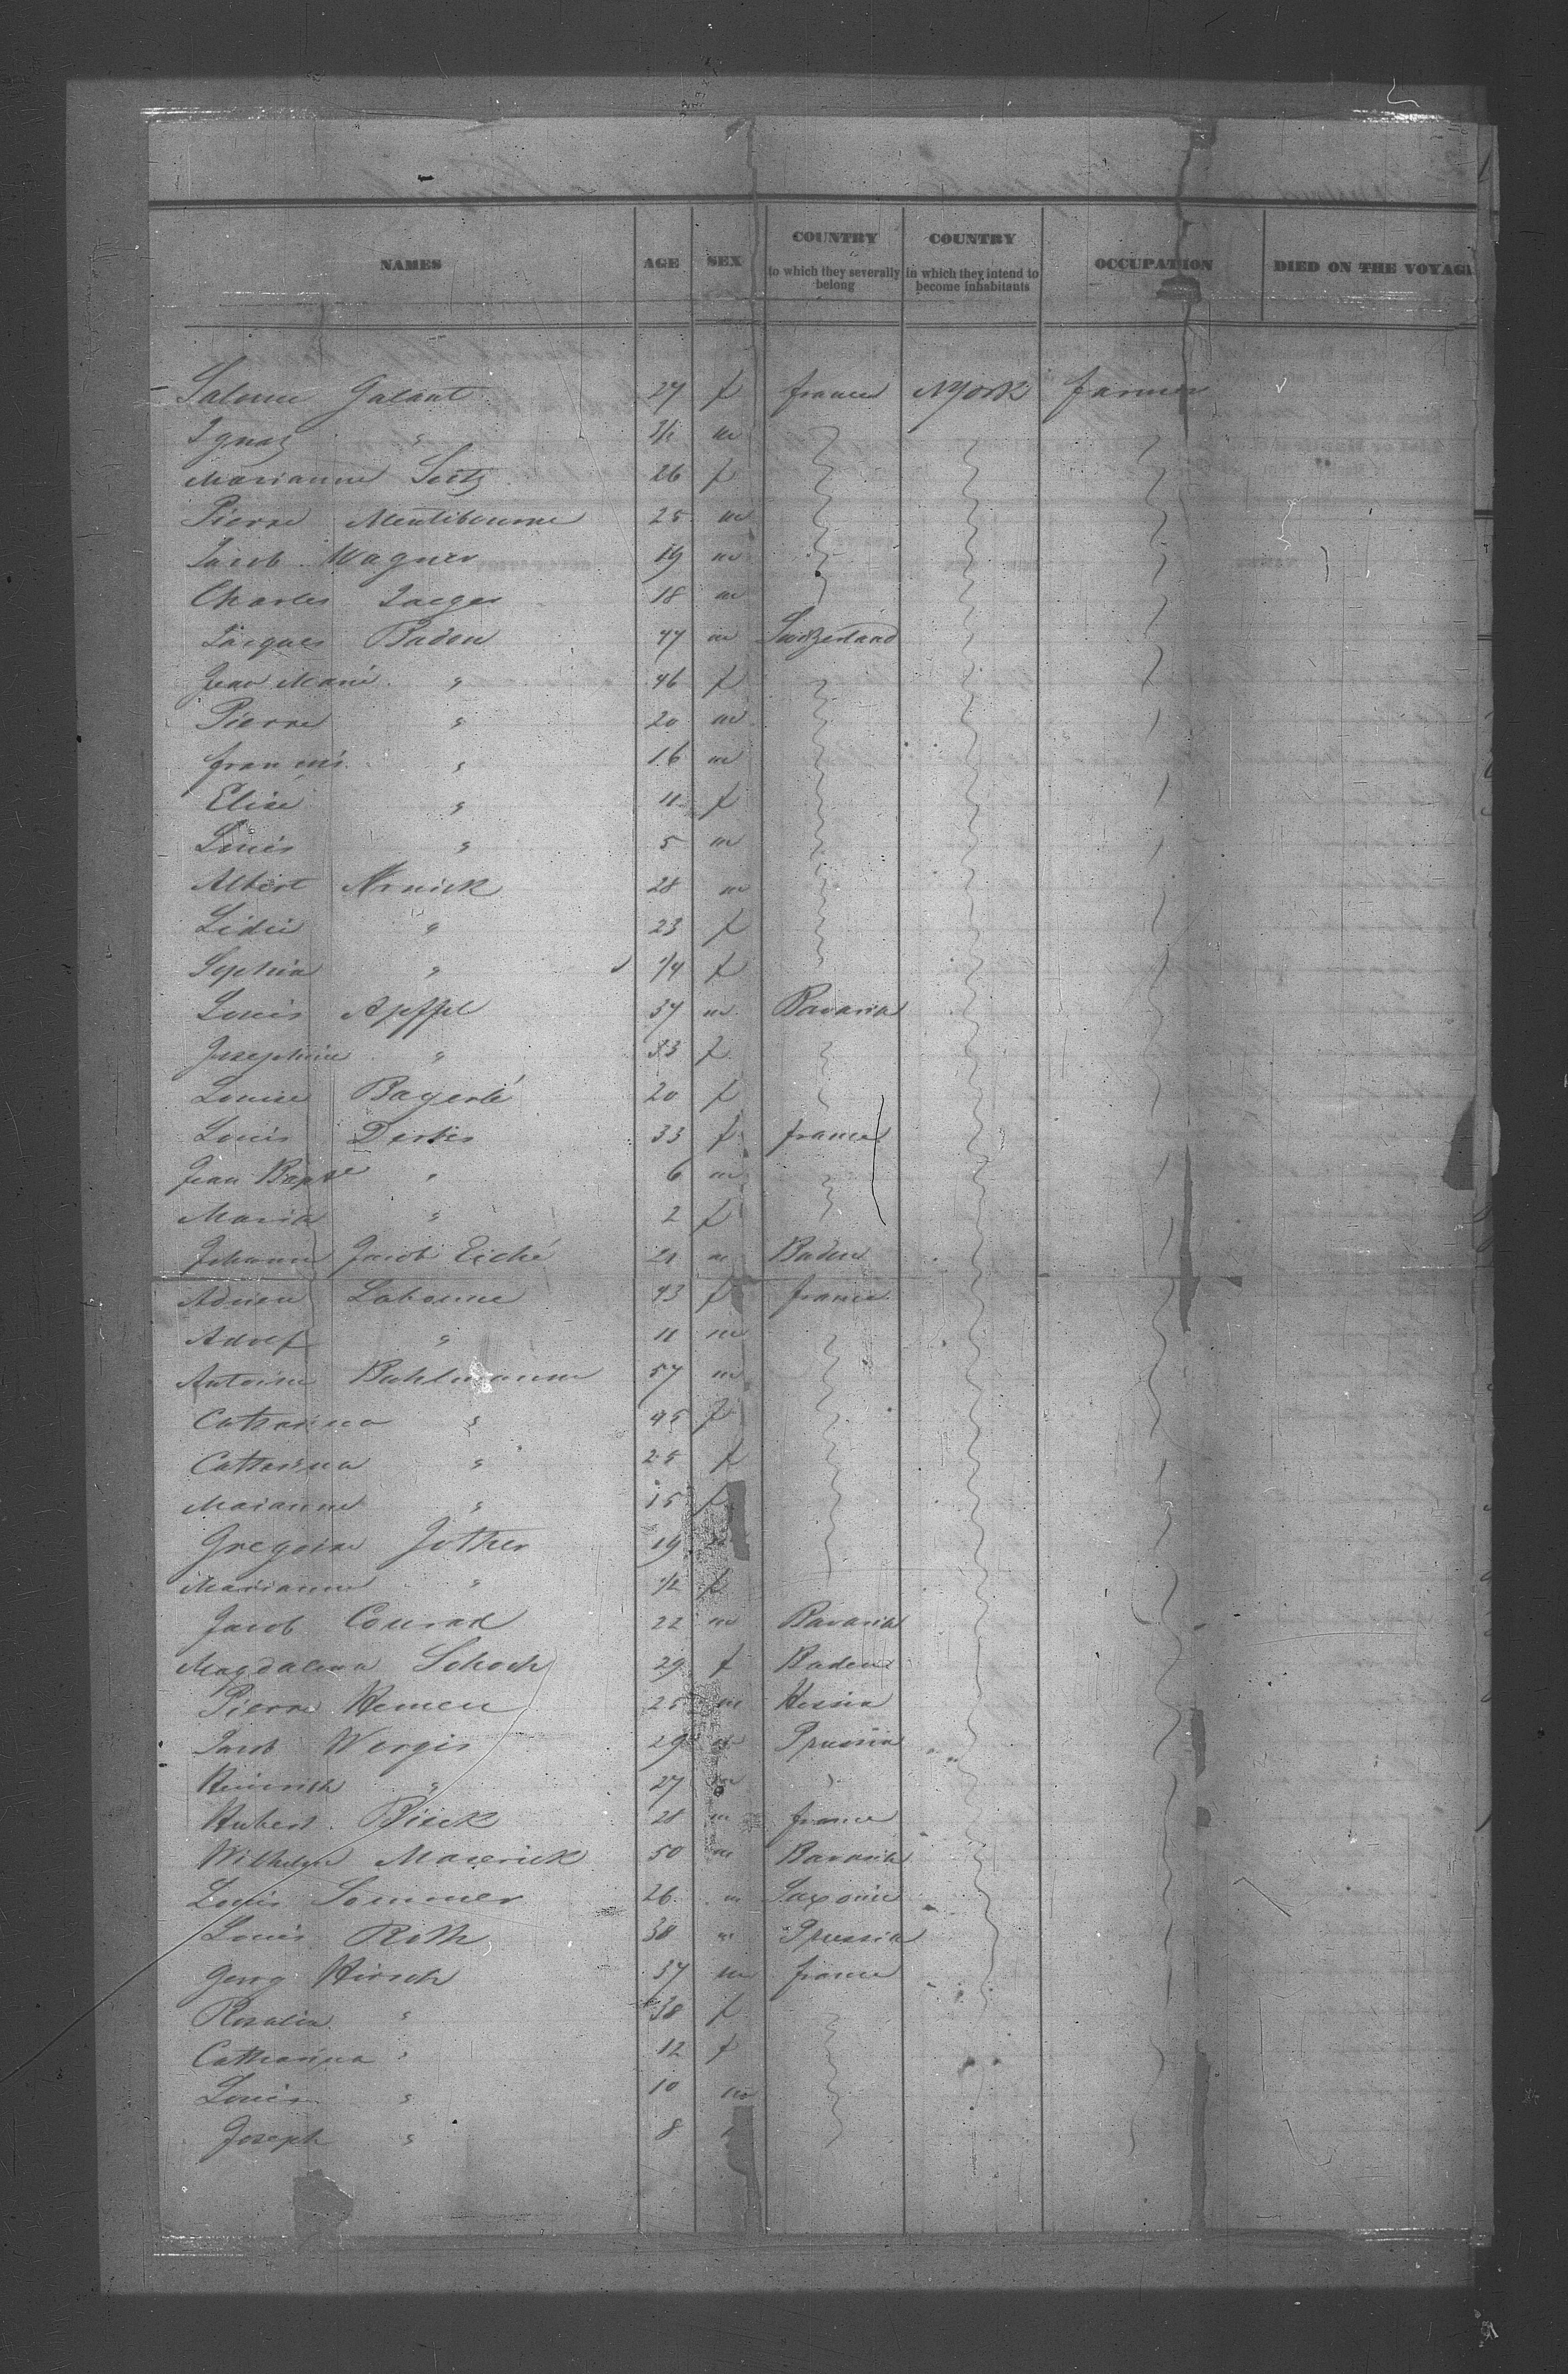 NAMES AGE SEX COUNTRY to which they severally belong COUNTRY in which they intend to become inhabitants OCCUPATION DIED ON THE VOYAGE
Salome Galant 27 f france NYork farmer
Ignaz " m
Marianne Seitz 26 f
Pierre 25 m
Jacob Wagner 19 m
Charles Jaeger 18 m
Jacques Baden 47 m Switzerland
Jean Marie " 46 f
Pierre " 20 m
francois " 16 m
Elise " 11 f
Louis " 5 m
Albert 28 m
Lidie " 23 f
Sophia " 1/4 f
Louis Apffel 37 m Bavaria
Josephine " 33 f
Louise Bayerlé 20 f
Louis 33 f france
Jean Bapte " 6 m
Maria " 2 f
Johann Jacob Eiché 21 m Baden
43 f france
Adolf " 11 m
Antoine Bahlmann 57 m
Catharina " 45 f
Catharina " 25 f
Marianne " 15 f
Gregoire Jother 19
Marianne " 1/2 f
Jacob Conrad 22 m Bavaria
Magdalena Schoch 29 f Baden
Pierre Hemen 25 m Hessia
Jacob Wergis 29 Prussia
Heinrich " 27 m "
Hubert Bieck 28 m france
Wilhelm Maserick 50 m Bavaria
Louis Sommer 26 m Saxonie
Louis Roth 38 m Prussia
Georg Hirsch 37 m france
Rosalia " 38 f
Catharina " 12 f
Louis " 10 m
Joseph " 8